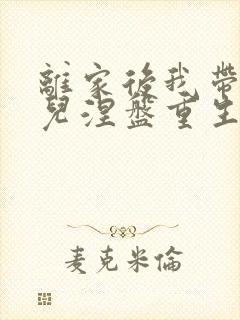 離家後我帶
兒涅盤重生
麦克米倫